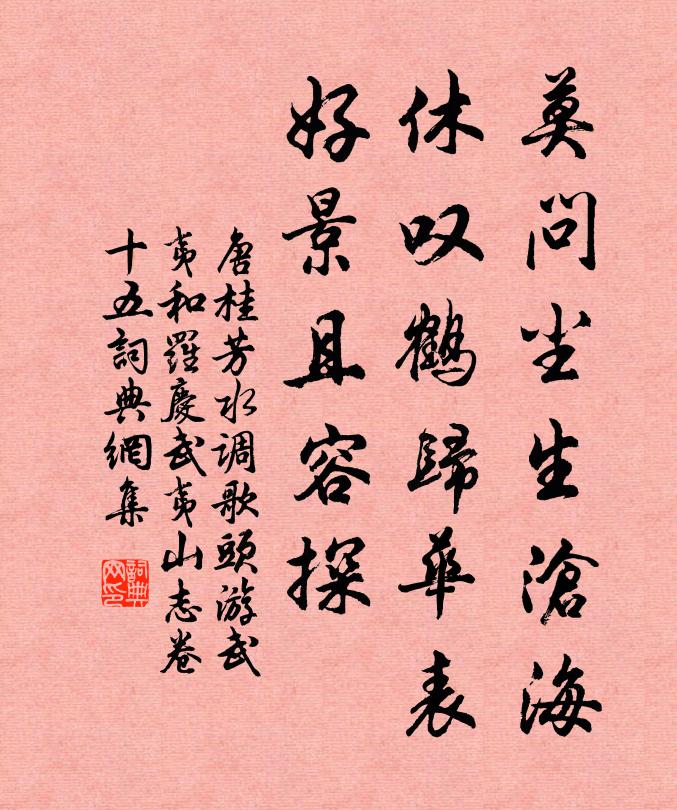 莫问尘生滄海
休叹鶴歸華表
好景且容探
唐桂芳水调歌頭游武
夷和羅慶武夷山志卷
十五詞典網集
詞典
网印